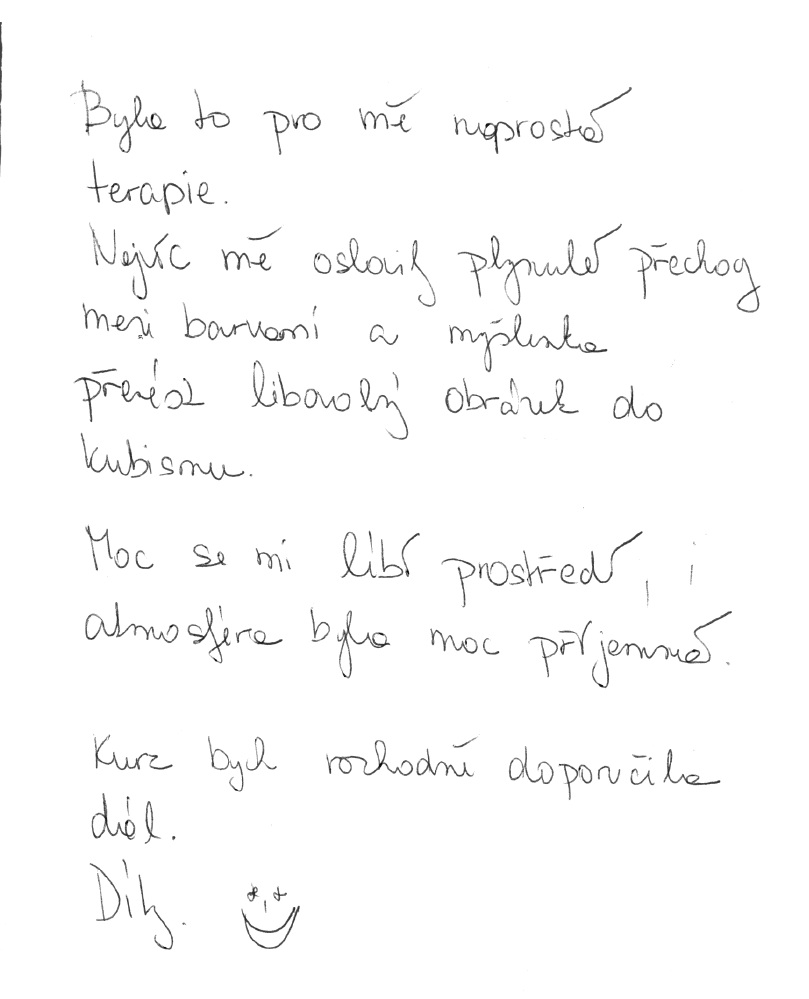 Byla to pro mě naprostá
terapie.
Nejvíc mě oslovily plynulé přechody
mezi barvami a myšlenka
přenést libovolný obrázek do
kubismu.
Moc se mi líbí prostředí, i
atmosféra byla moc příjemná.
Kurz bych rozhodně doporučila
dál.
Díky.